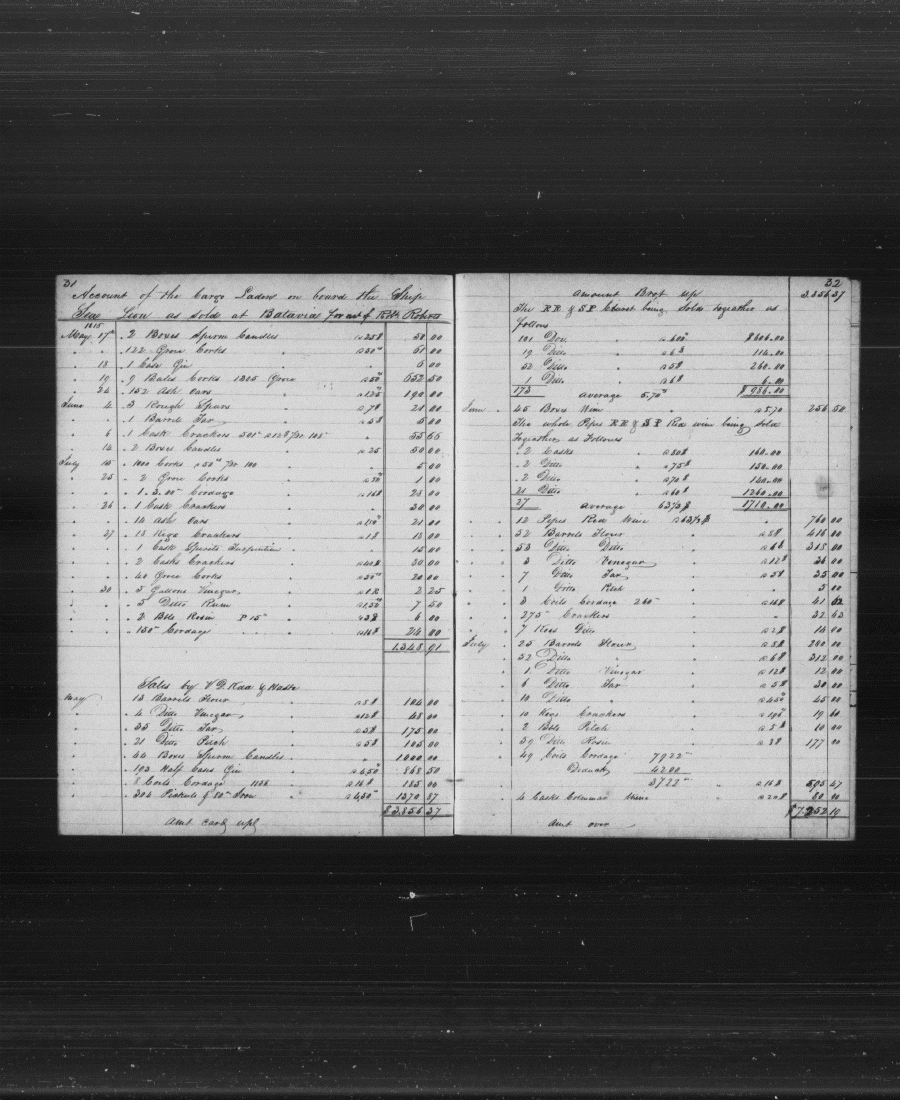 31
Account of the Cargo Laden on board the Ship
Sea Lion as sold at Batavia for act of Robt. Roberts
1815
May 17th . 2 Boxes Sperm Candles a 25$ 50 00
" " . 122 Groce Corks . a 50" 61 00
" 18 . 1 Case Gin . 6 00
" 19 . 9 Bales Corks 1305 Groce a 50" 652 50
" 24 . 152 Ash Oars . a 125" 190 00
June 4 . 3 Rough Spars . a 7$ 21 00
. 1 Barrel Tar . a 5$ 5 00
" 6 . 1 Cask Crackers 55 66
" 14 . 2 Boxes Candles a 25 50 00
July 15 . 1000 Corks a 50" pr 100 5 00
" 25 . 2 Groce Corks a 50" 1 00
" " . Cordage a 16$ 28 00
" 26 . 1 Cask Crackers . 30 00
. 14 Ash Oars . 21 00
" 27 . 13 Kegs Crackers . a 1$ 13 00
. 1 Cask Spirits Turpentine . 15 00
. 2 Casks Crackers . 30 00
. 40 Groce Corks . a 50" 20 00
" 30 . 3 Gallons Vinegar 2 25
. 5 Ditto Rum . a 1,50" 7 50
. 2 Bbls Rosin a 3$ 6 00
. 150 Cordage . . . . a 16$ 24 00
1.348 91
Sales by V D. Kaa & Haste
May . 13 Barrels Flour . a 8$ 104 00
. 4 Ditto Vinegar . a 12$ 48 00
. 35 Ditto Tar . a 5$ 175 00
. 21 Ditto Pitch . a 5$ 105 00
. 44 Boxes Sperm Candles . . 1000 00
. 193 Half Cases Gin a 4,50" 868 50
. 8 Coils Cordage a 16$ 185 00
. 304 Peckuls of Iron a 4,50" 1370 87
$3.856 37
Amt card up
32
Amount Brot up 3.856 37
The RR & SP Claret being Sold togeather as
follows
101 Doz. . a 600" $606.00
19 Ditto . a 6$ 114.00
52 Ditto . a 5$ 260.00
1 Ditto . a 6$ 6.00
173 average 5,70" $986.00
June . 45 Boxes Wine . a 5,70 256 50
The whole Pipes RR & SP Red wine being Sold
Togeather as Follows
. 2 Casks . a 80$ 160.00
. 2 Ditto . a 75$ 150.00
. 2 Ditto . a 70$ 140.00
21 Ditto . a 60$ 1260.00
27 average 63 1/3 $ 1710.00
. 12 Pipes Red Wine a 63 1/3 $ . 760 00
. 52 Barrels Flour . a 8$ 416 00
. 53 Ditto Ditto . a 6$ 318 00
. 3 Ditto Vinegar . a 12$ 36 00
. 7 Ditto Tar . a 5$ 35 00
. 1 Ditto Pitch . . 5 00
. 3 Coils Cordage 260" . a 16$ 41 62
. 275" Crackers . .
. 7 Kegs Ditto . a 2$ 14 00
July . 25 Barrels Flour . a 8$ 200 00
. 52 Ditto " . a 6$ 312 00
. 1 Ditto Vinegar . a 12$ 12 00
. 6 Ditto Tar . a 5$ 30 00
. 10 Ditto " . a 450" 45 00
. 10 Kegs Crackers . 19 60
. 2 Bbls Pitch . a 5$ 10 00
. 59 Ditto Rosin . a 3$ 177 00
. 49 Coils Cordage 7922"
Deduct 4200
3722" " a 16$ 595 47
. 4 Casks Wine . a 20$ 80 00
$7.252 19
Amt over